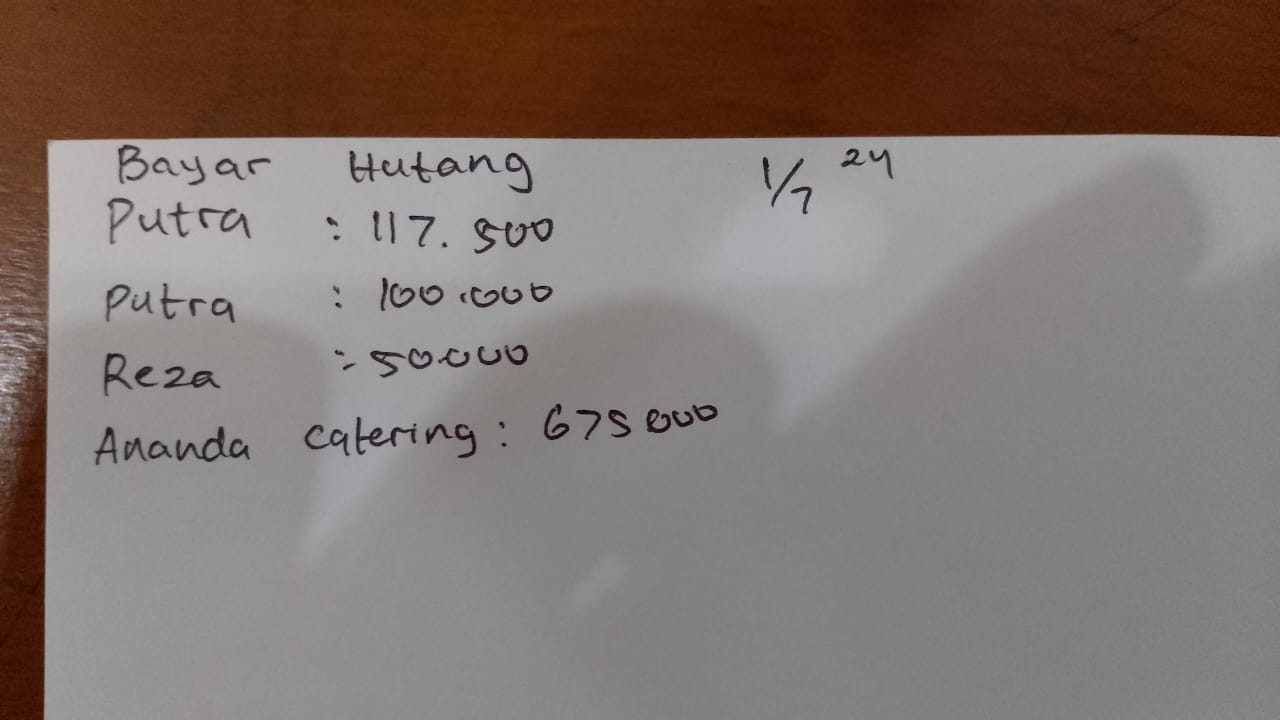 Bayar Hutang 1/7 24
Putra : 117.500
Putra : 100.000
Reza : 50.000
Ananda Catering : 675 000